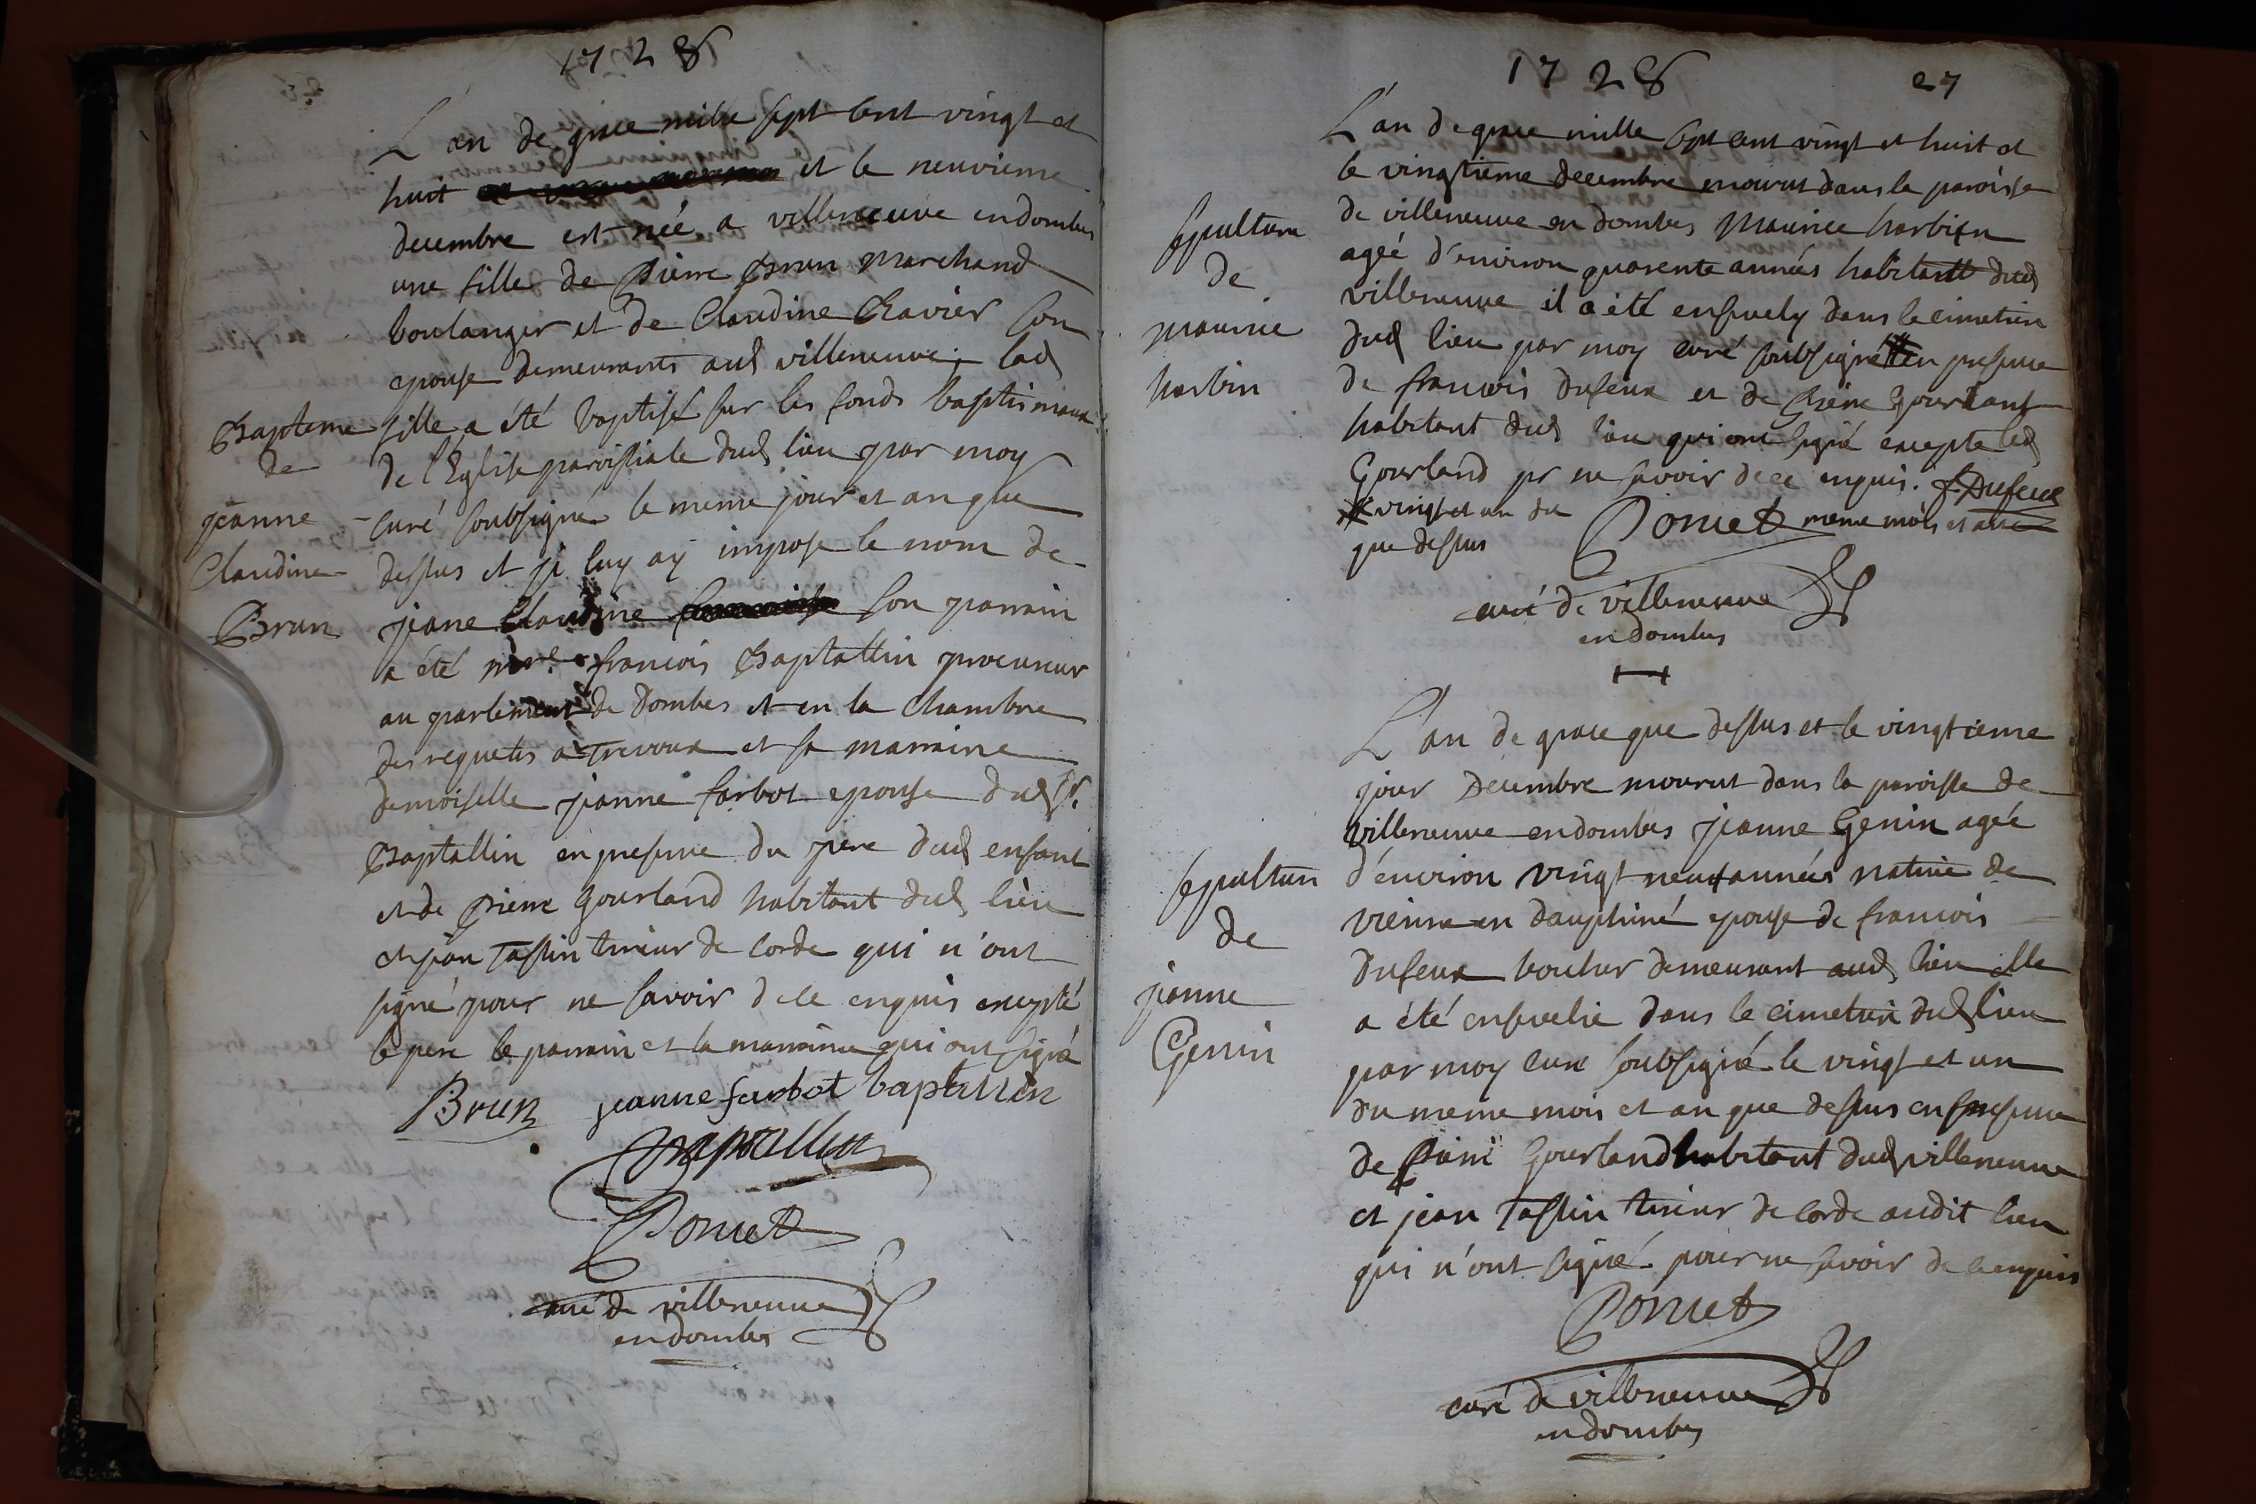 1728
L'an de grace mille sept cent vingt et
huit et le neuvieme
decembre est née a villeneuve en dombes
une fille de Pierre Brun marchand
boulanger et de Claudine Chavier son
epouse demeurants aud villeneuve, lad
fille a été baptisé sur les fonds baptismaux
de l'Eglise paroissiale dud lieu par moy
curé soubsigné le meme jour et an que
dessus et je luy ay imposé le nom de
jeane Claudine son parrain
a été mre francois Baptallin procureur
au parlement de Dombes et en la Chambre
des requetes a Trevoux et sa marraine
demoiselle jeanne farbot epouse dud sr.
Baptallin en presence du pere dud enfant
et de Pierre Gourland habitant dud lieu
et jean Tassin tireur de corde qui n'ont
signé pour ne savoir de ce enquis excepté
le pere le parrain et la marraine qui ont signé
Brun jeanne farbot baptallin
Baptallin
Poncet
curé de villeneuve
en dombes
Bapteme
de
jeanne
Claudine
Brun
1728
27
L'an de grace mille sept cent vingt et huit et
le vingtieme decembre mourut dans la paroisse
de villeneuve en dombes Maurice harbin
agéé d'environ quarente années habitant dud
villeneuve il a été ensevely dans le cimetiere
dud lieu par moy curé soubsigné en presence
de francois Dufeux et de Pierre Gourland
habitant dud lieu qui ont signé excepte led
Gourland pr ne savoir de ce enquis. f. Dufeux
vingt et un du meme mois et an
que dessus
Poncet
curé de villeneuve
en dombes
Sepulture
de
maurice
harbin
L'an de grace que dessus et le vingtieme
jour Decembre mourut dans la paroisse de
villeneuve en dombes jeanne Genin agée
d'environ vingt neuf années native de
vienne en dauphiné epouse de francois
Dufeux boucher demeurant aud lieu elle
a été ensevelie dans le cimetiere dud lieu
par moy curé soubsigné le vingt et un
du meme mois et an que dessus en presence
de Pierre Gourland habitant dud villeneuve
et jean Tassin tireur de corde audit lieu
qui n'ont signé pour ne savoir de ce enquis
Poncet
curé de villeneuve
en dombes
Sepulture
de
jeanne
Genin